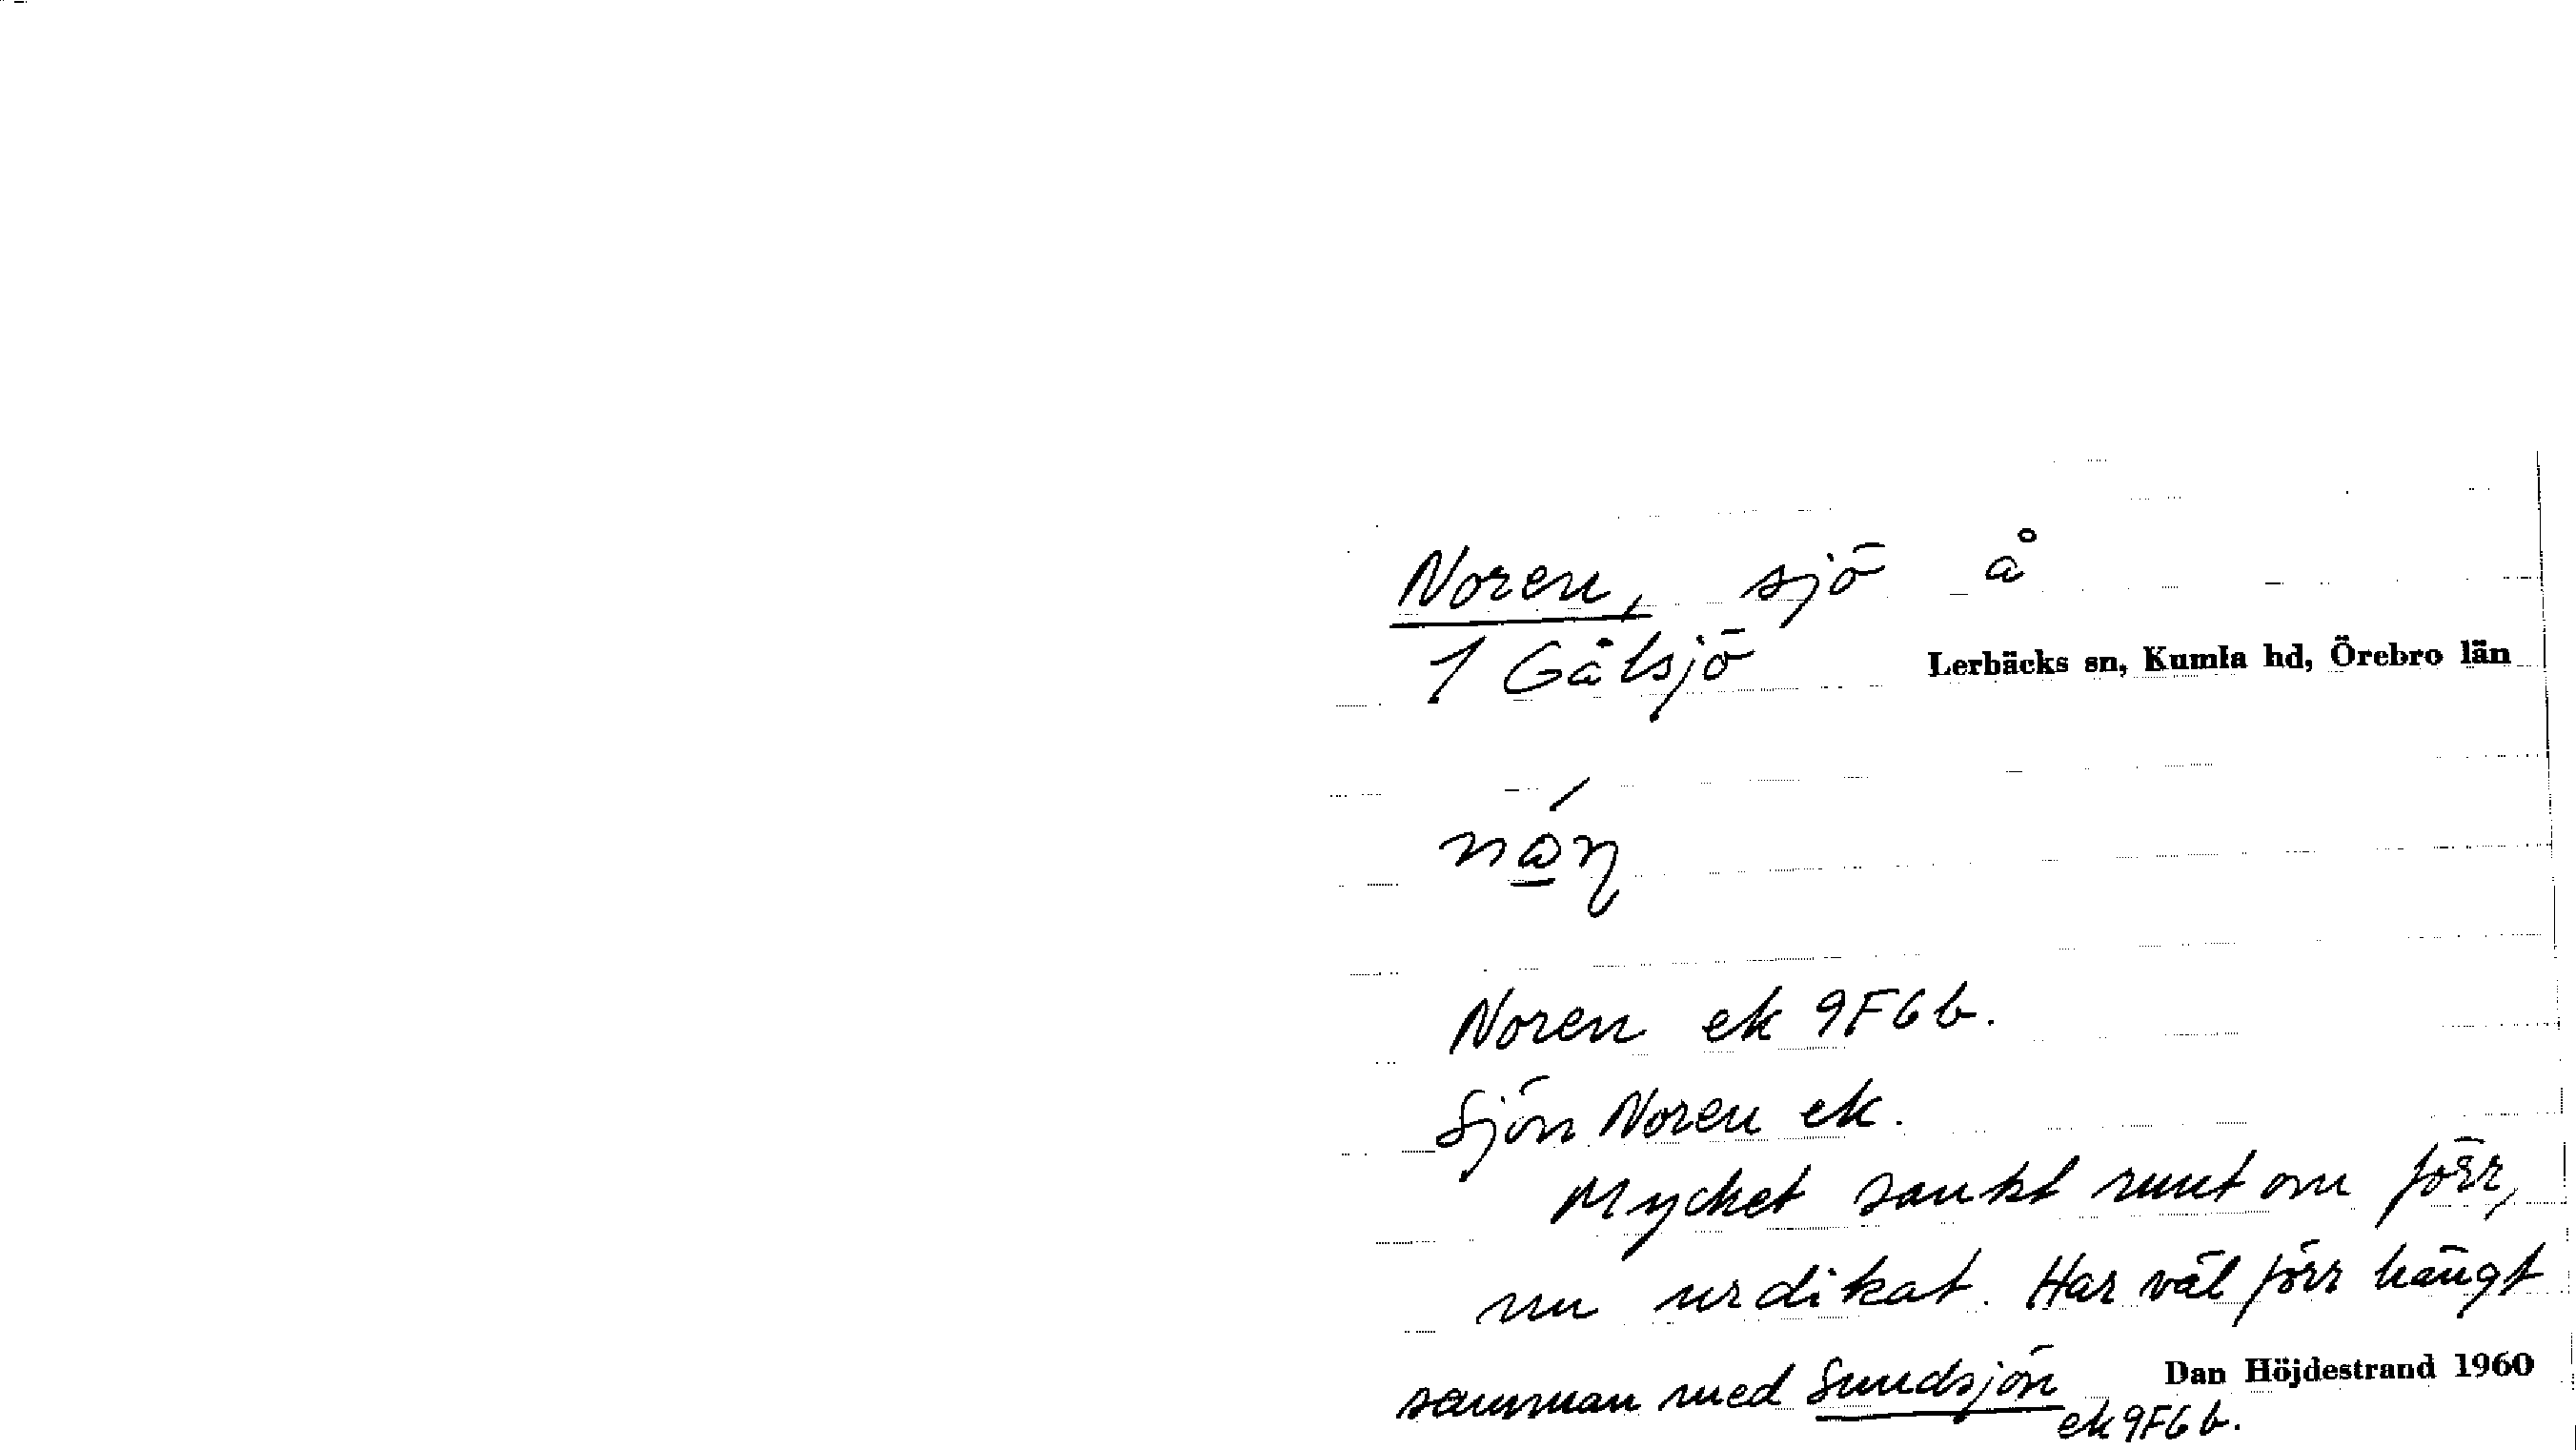 Noren, sjö å
1 Gålsjö Lerbäcks sn, Kumla hd, Örebro län
Noren ek 9F6b.
Sjön Noren ek.
Mycket sankt runt om förr,
nu urdikat. Har väl förr hängt
samman med Sundsjön Dan Höjdestrand 1960
ek 9F6b.